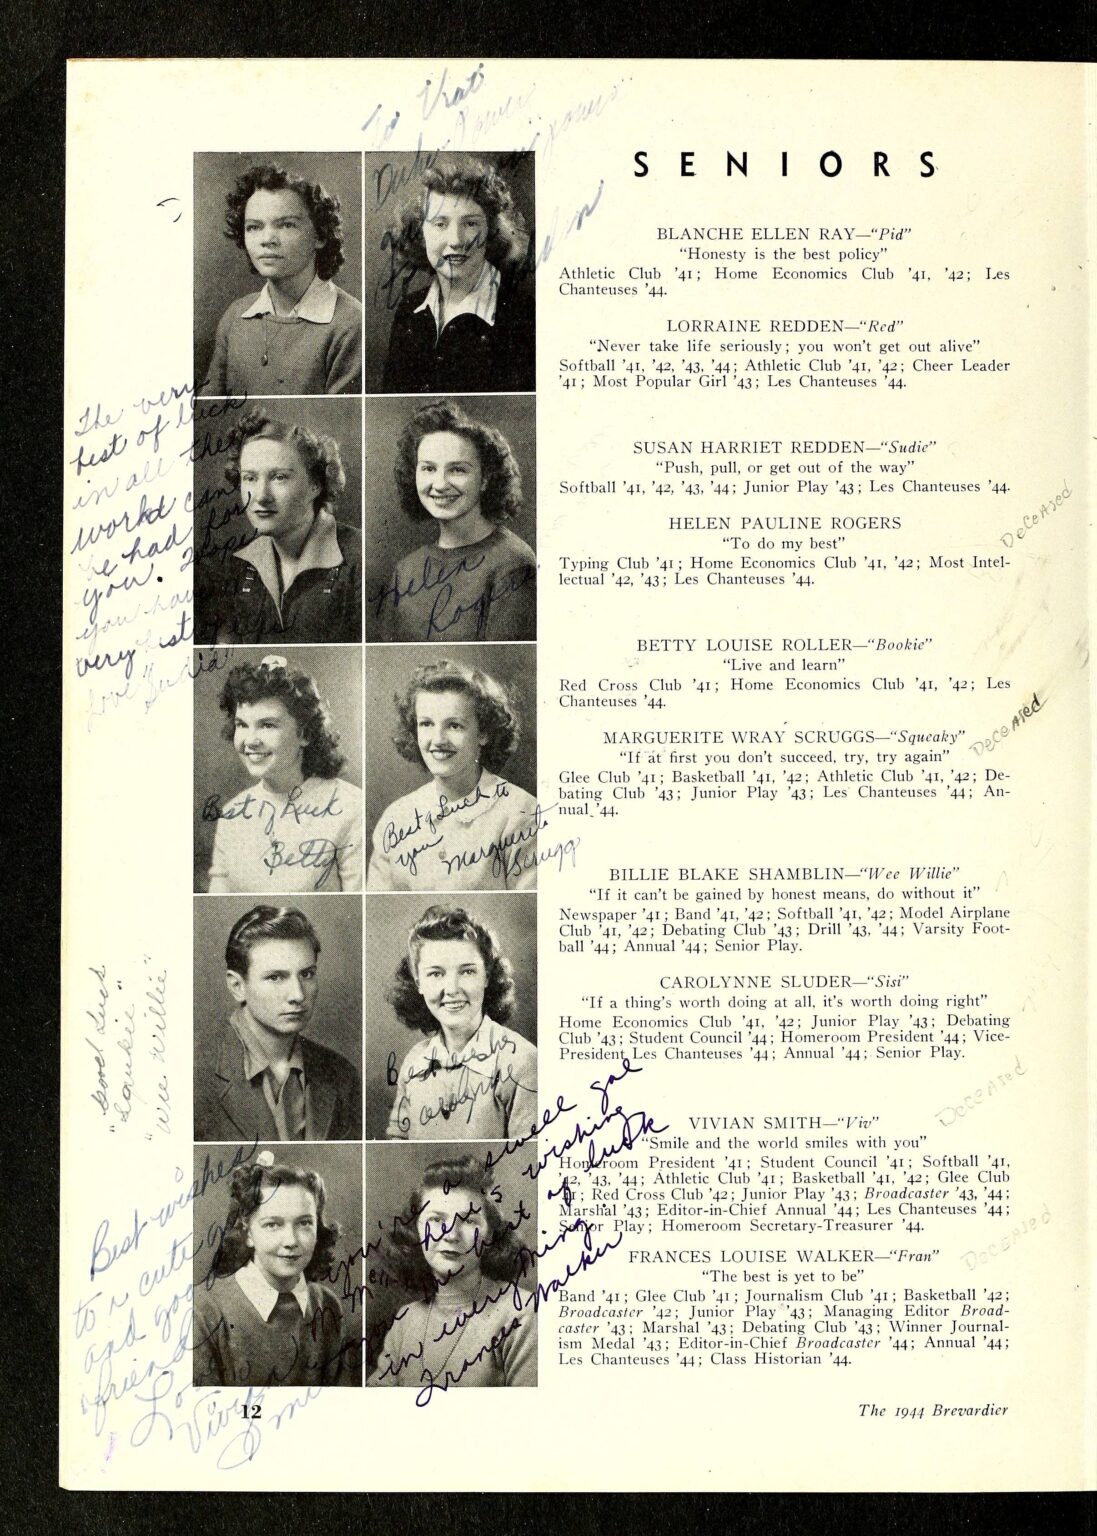 To that
SENIORS
BLANCHE ELLEN RAY—"Pid"
"Honesty is the best policy"
Athletic Club '41; Home Economics Club '41, '42; Les
Chanteuses '44.
LORRAINE REDDEN—"Red"
"Never take life seriously; you won't get out alive"
Softball '41, '42, '43, '44; Athletic Club '41, '42; Cheer Leader
'41; Most Popular Girl '43; Les Chanteuses '44.
The very
best of luck
in all the
world can
be had for
you. Hope
you have
very best of
Love
SUSAN HARRIET REDDEN—"Sudie"
"Push, pull, or get out of the way"
Softball '41, '42, '43, '44; Junior Play '43; Les Chanteuses '44.
HELEN PAULINE ROGERS
"To do my best"
Typing Club '41; Home Economics Club '41, '42; Most Intel-
lectual '42, '43; Les Chanteuses '44.
Deceased
Helen
Rogers
BETTY LOUISE ROLLER—"Bookie"
"Live and learn"
Red Cross Club '41; Home Economics Club '41, '42; Les
Chanteuses '44.
MARGUERITE WRAY SCRUGGS—"Squeaky"
"If at first you don't succeed, try, try again"
Glee Club '41; Basketball '41, '42; Athletic Club '41, '42; De-
bating Club '43; Junior Play '43; Les Chanteuses '44; An-
nual '44.
Deceased
Best of Luck
Betty
Best of Luck to
you
Marguerite
Scruggs
BILLIE BLAKE SHAMBLIN—"Wee Willie"
"If it can't be gained by honest means, do without it"
Newspaper '41; Band '41, '42; Softball '41, '42; Model Airplane
Club '41, '42; Debating Club '43; Drill '43, '44; Varsity Foot-
ball '44; Annual '44; Senior Play.
CAROLYNNE SLUDER—"Sisi"
"If a thing's worth doing at all, it's worth doing right"
Home Economics Club '41, '42; Junior Play '43; Debating
Club '43; Student Council '44; Homeroom President '44; Vice-
President Les Chanteuses '44; Annual '44; Senior Play.
Good Luck
"Squkie"
"Wee Willie"
Best wishes
Carolynne
VIVIAN SMITH—"Viv"
"Smile and the world smiles with you"
Homeroom President '41; Student Council '41; Softball '41,
'42, '43, '44; Athletic Club '41; Basketball '41, '42; Glee Club
'41; Red Cross Club '42; Junior Play '43; Broadcaster '43, '44;
Marshal '43; Editor-in-Chief Annual '44; Les Chanteuses '44;
Senior Play; Homeroom Secretary-Treasurer '44.
Deceased
FRANCES LOUISE WALKER—"Fran"
"The best is yet to be"
Band '41; Glee Club '41; Journalism Club '41; Basketball '42;
Broadcaster '42; Junior Play '43; Managing Editor Broad-
caster '43; Marshal '43; Debating Club '43; Winner Journal-
ism Medal '43; Editor-in-Chief Broadcaster '44; Annual '44;
Les Chanteuses '44; Class Historian '44.
Deceased
Best wishes
to a cute gal
and good
friend.
Love
Vivian
Smith
you're a swell gal
here's wishing
you the best of luck
in everything
Frances Walker
12
The 1944 Brevardier